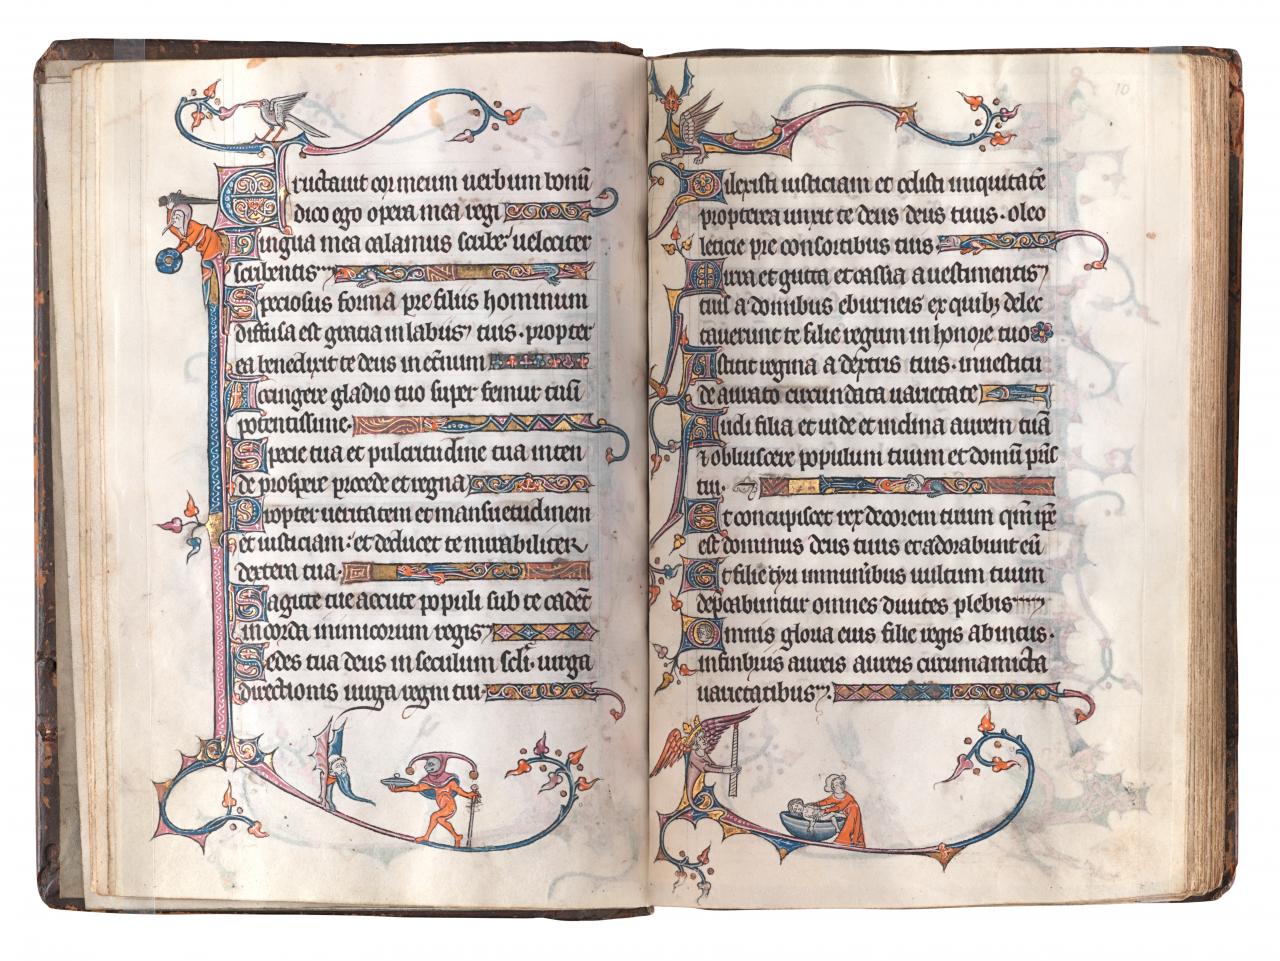 Eructauit cor meum uerbum bonū
dico ego opera mea regi
Lingua mea calamus scribe uelociter
scribentis
Speciosus forma pre filiis hominum
diffusa est gracia in labiis tuis · propter
ea benedixit te deus in et̄num
Accingere gladio tuo super femur tuū
potentissime
Specie tua et pulcritudine tua inten
de prospere procede et regna
Propter ueritatem et mansuetudinem
et iusticiam : et deducet te mirabiliter
dextera tua ·
Sagitte tue accute populi sub te cadēt
in corda inimicorum regis
Sedes tua deus in seculum scl̄i · uirga
directionis uirga regni tui
10
Dilexisti iusticiam et odisti iniquitatē
propterea unxit te deus deus tuus · oleo
leticie pre consortibus tuis
Mirra et gutta et cassia a uestimentis
tuis a domibus eburneis ex quibꝫ delec
tauerunt te filie regum in honore tuo
Astitit regina a dextris tuis · in uestitu
de aurato circundata uarietate
Audi filia et uide et inclina aurem tuā
⁊ obliuiscere populum tuum et domū pr̄is
tui ·
Et concupiscet rex decorem tuum qm̄ ip̄e
est dominus deus tuus et adorabunt eū
Et filie tyri in munibus uultum tuum
dep̄cabuntur omnes diuites plebis
Omnis gloria eius filie regis ab intus ·
in fimbriis aureis aureis circumamicta
uarietatibus